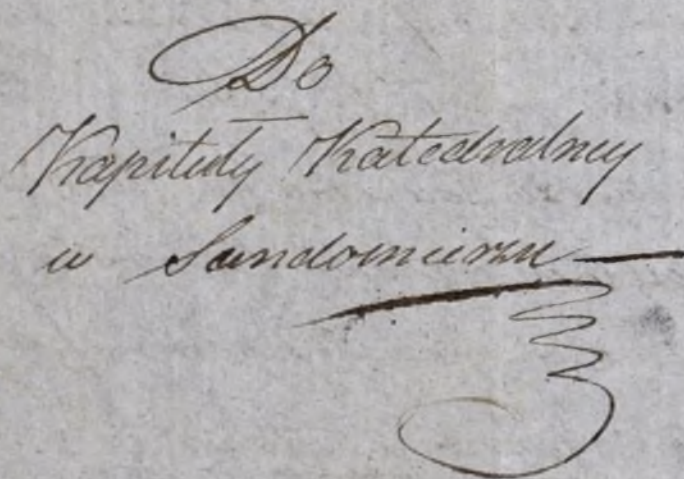 Do
Kapituły Katedralney
w Sandomierzu